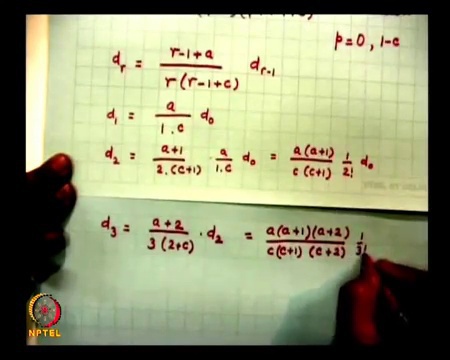 p=0, 1-c
d_r = \frac{r-1+a}{r(r-1+c)} d_{r-1}
d_1 = \frac{a}{1.c} d_0
d_2 = \frac{a+1}{2.(c+1)} \cdot \frac{a}{1.c} d_0 = \frac{a(a+1)}{c(c+1)} \frac{1}{2!} d_0
d_3 = \frac{a+2}{3(2+c)} \cdot d_2 = \frac{a(a+1)(a+2)}{c(c+1)(c+2)} \frac{1}{3!}
NPTEL